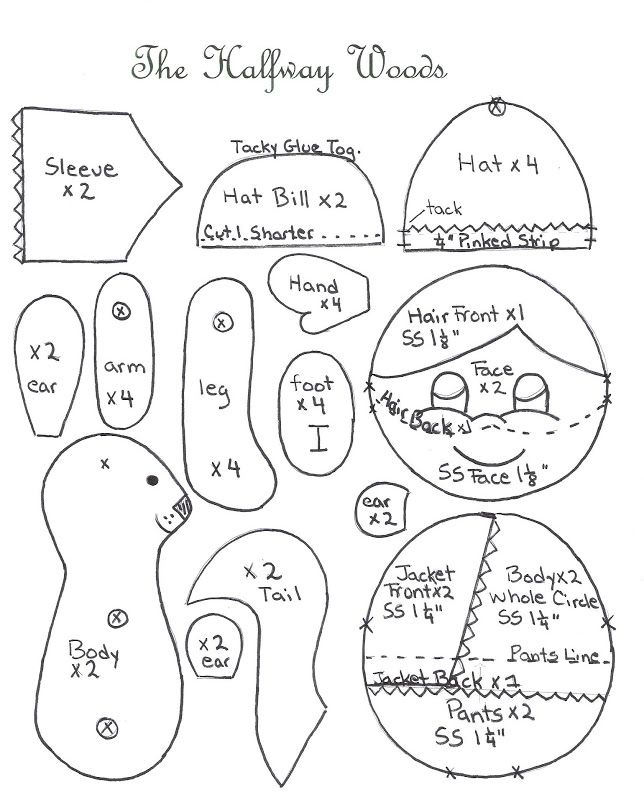 The Halfway Woods
Sleeve
x 2
Tacky Glue Tog.
Hat Bill x 2
Cut 1 Shorter
Hat x 4
tack
1/4" Pinked Strip
x 2
ear
arm
x 4
leg
x 4
Hand
x 4
foot
x 4
Hair Front x 1
SS 1 1/8"
Face
x 2
Hair Back x 1
SS Face 1 1/8"
ear
x 2
Body
x 2
x 2
Tail
x 2
ear
Jacket
Front x 2
SS 1 1/4"
Body x 2
Whole Circle
SS 1 1/4"
Pants Line
Jacket Back x 1
Pants x 2
SS 1 1/4"